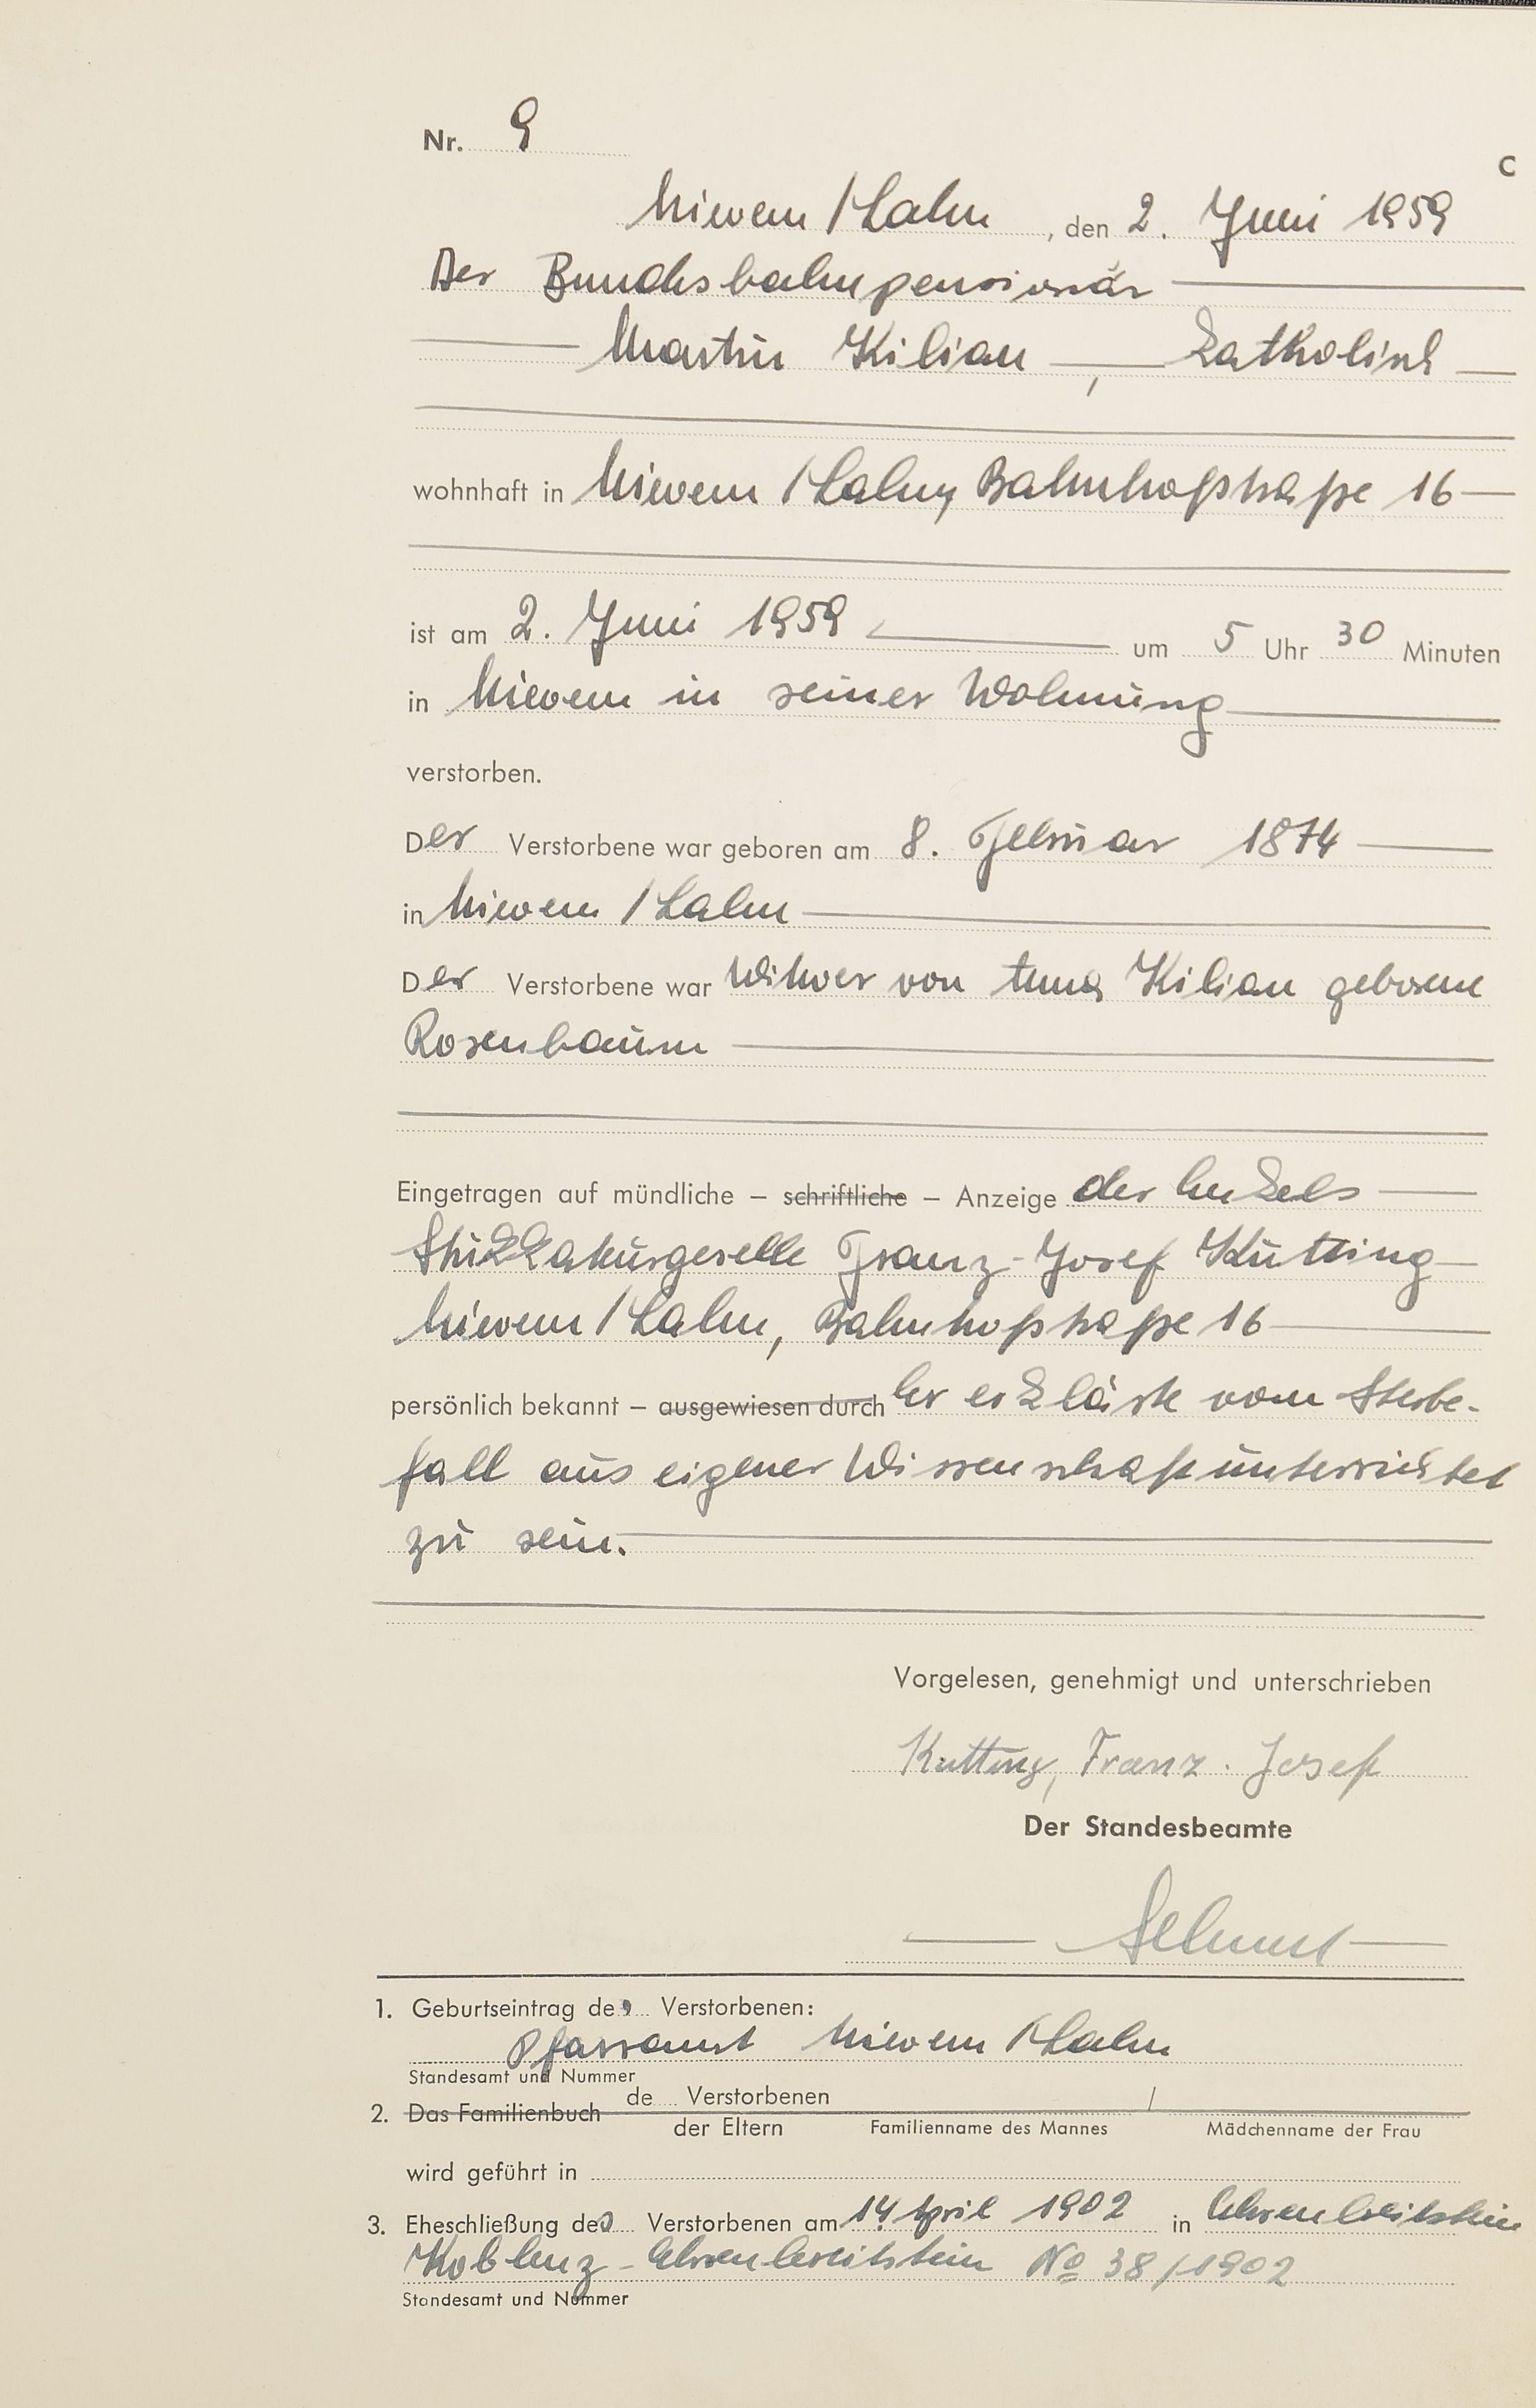 Nr. 9
C
Nievern / Lahn, den 2. Juni 1959
Der Bundesbahnpensionär
Martin Kilian, katholisch
wohnhaft in Nievern / Lahn, Bahnhofstraße 16
ist am 2. Juni 1959 um 5 Uhr 30 Minuten
in Nievern in seiner Wohnung
verstorben.
Der Verstorbene war geboren am 8. Februar 1874
in Nievern / Lahn
Der Verstorbene war Witwer von Anna Kilian geborene
Rosenbaum
Eingetragen auf mündliche – schriftliche – Anzeige des Enkels
Stukkaturgeselle Franz-Josef Kutting
Nievern / Lahn, Bahnhofstraße 16
persönlich bekannt – ausgewiesen durch Er erklärte vom Sterbe-
fall aus eigener Wissenschaft unterrichtet
zu sein.
Vorgelesen, genehmigt und unterschrieben
Kutting, Franz-Josef
Der Standesbeamte
1. Geburtseintrag des Verstorbenen:
Pfarramt Nievern / Lahn
Standesamt und Nummer
2. Das Familienbuch de Verstorbenen /
der Eltern Familienname des Mannes Mädchenname der Frau
wird geführt in
3. Eheschließung des Verstorbenen am 14. April 1902 in Ehrenbreitstein
Koblenz-Ehrenbreitstein No 38/1902
Standesamt und Nummer